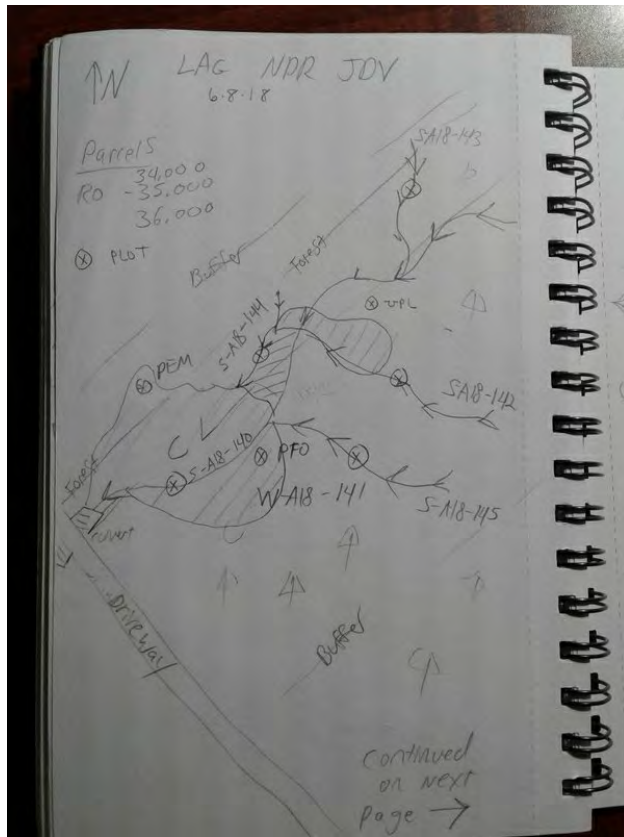 N
LAG NPR JDV
6.8.18
Parcels
34,000
RO -35.000
36.000
⊗ PLOT
SA18-143
Buffer
Forest
UPL
S-A18-144
PEM
SA18-142
S-A18-140
PFO
W-A18-141
S-A18-145
Forest
culvert
Driveway
Buffer
Continued
on Next
Page →